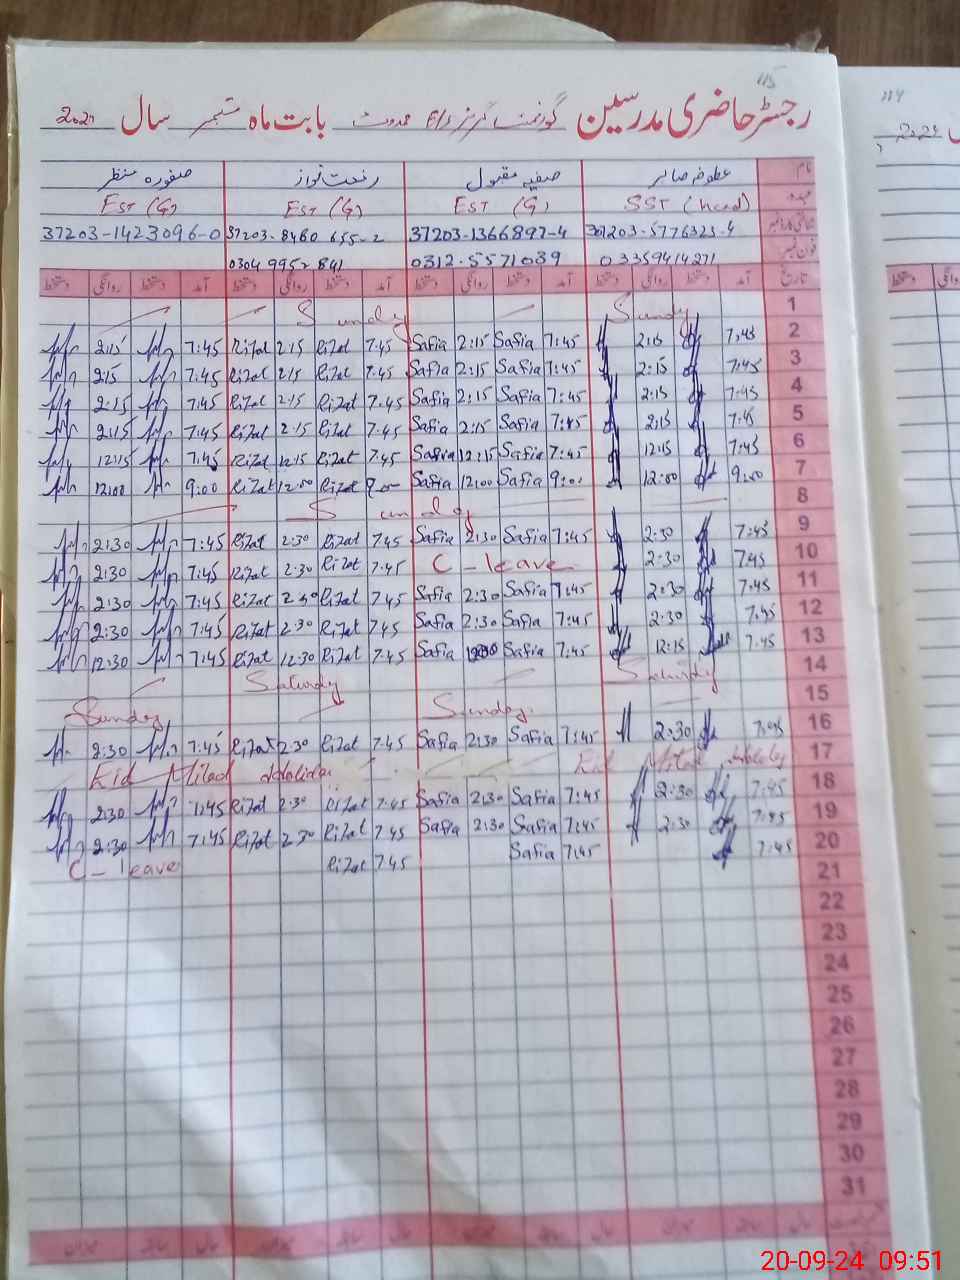 115
رجسٹر حاضری مدرسین گورنمنٹ گرلز بابت ماہ ستمبر سال
نام عطوفہ صابر صفیہ مقبول رفعت نواز صفورہ منظر
عہدہ SST (Head) EST (G) EST (G) EST (G)
37203-1423096-0 37203-8460 655-2 37203-1366897-4 -5776323-4
فون نمبر 0304 995 841 0312-5571039 03359414271
تاریخ آمد دستخط روانگی دستخط آمد دستخط روانگی دستخط آمد دستخط روانگی دستخط آمد دستخط روانگی دستخط
Sunday Sunday 1
2:15 7:45 Rifat 2:15 Rifat 7:45 Safia 2:15 Safia 7:45 2:15 7:45 2
2:15 7:45 Rifat 2:15 Rifat 7:45 Safia 2:15 Safia 7:45 2:15 7:45 3
2:15 7:45 Rifat 2:15 Rifat 7:45 Safia 2:15 Safia 7:45 2:15 7:45 4
2:15 7:45 Rifat 2:15 Rifat 7:45 Safia 2:15 Safia 7:45 2:15 7:45 5
12:15 7:45 Rifat 12:15 Rifat 7:45 Safia 12:15 Safia 7:45 12:15 7:45 6
12:00 9:00 Rifat 12:00 Rifat 9:00 Safia 12:00 Safia 9:00 12:00 9:00 7
Sunday 8
2:30 7:45 Rifat 2:30 Rifat 7:45 Safia 2:30 Safia 7:45 2:30 7:45 9
2:30 7:45 Rifat 2:30 Rifat 7:45 C-leave 2:30 7:45 10
2:30 7:45 Rifat 2:30 Rifat 7:45 Safia 2:30 Safia 7:45 2:30 7:45 11
2:30 7:45 Rifat 2:30 Rifat 7:45 Safia 2:30 Safia 7:45 2:30 7:45 12
12:30 7:45 Rifat 12:30 Rifat 7:45 Safia Safia 7:45 12:15 7:45 13
Saturday Saturday 14
Sunday Sunday. 15
2:30 7:45 Rifat 2:30 Rifat 7:45 Safia 2:30 Safia 7:45 2:30 7:45 16
Eid Milad Holiday Eid Milad Holiday 17
2:30 7:45 Rifat 2:30 Rifat 7:45 Safia 2:30 Safia 7:45 2:30 7:45 18
2:30 7:45 Rifat 2:30 Rifat 7:45 Safia 2:30 Safia 7:45 2:30 7:45 19
C-leave Rifat 7:45 Safia 7:45 7:45 20
21
22
23
24
25
26
27
28
29
30
31
20-09-24 09:51